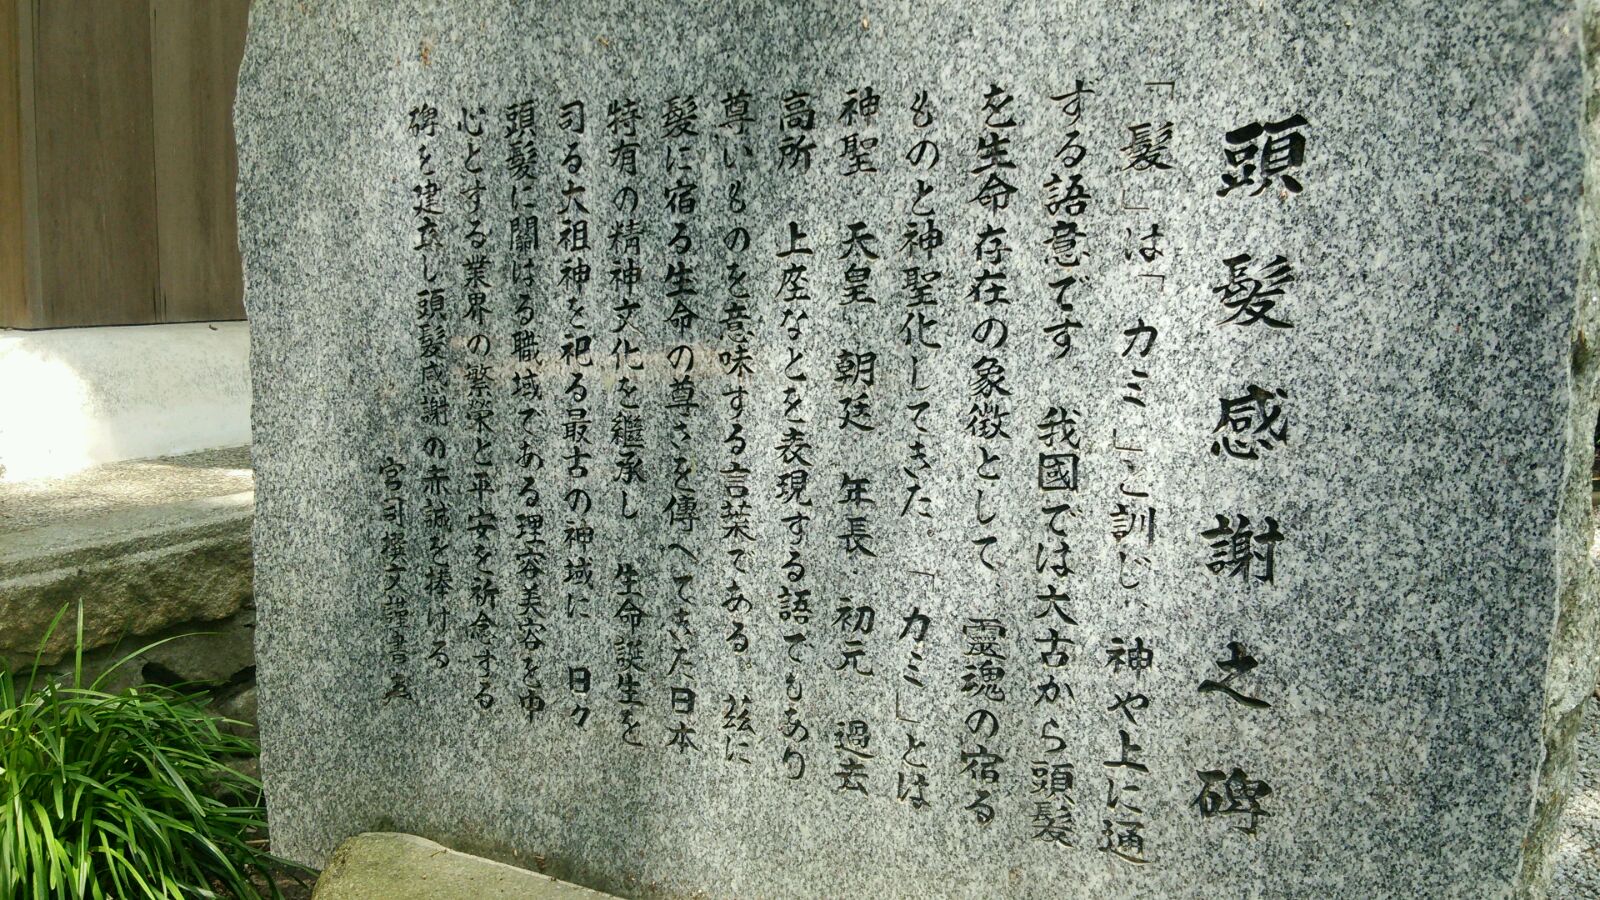 頭髪感謝之碑
「髪」は「カミ」と訓じ、神や上に通
ずる語意です。我國では大古から頭髪
を生命存在の象徴として、靈魂の宿る
ものと神聖化してきた。「カミ」とは
神聖 天皇 朝廷 年長 初元 過去
高所 上座などを表現する語でもあり
尊いものを意味する言葉である。茲に
髪に宿る生命の尊さを傳へてきた日本
特有の精神文化を継承し 生命誕生を
司る大祖神を祀る最古の神域に 日々
頭髪に關はる職域である理容美容を中
心とする業界の繁榮と平安を祈念する
碑を建立し頭髪感謝の赤誠を捧ける
宮司撰文謹書